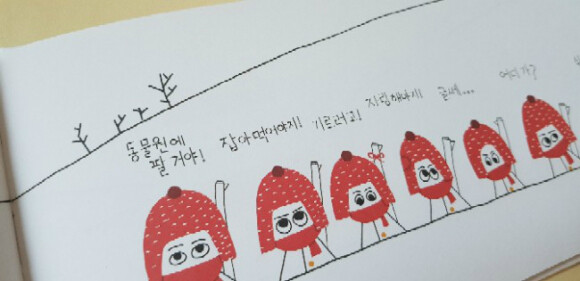 동물원에
팔 거야!
잡아먹어야지!
기르려고!
자랑해야지!
글쎄...
어디 가?